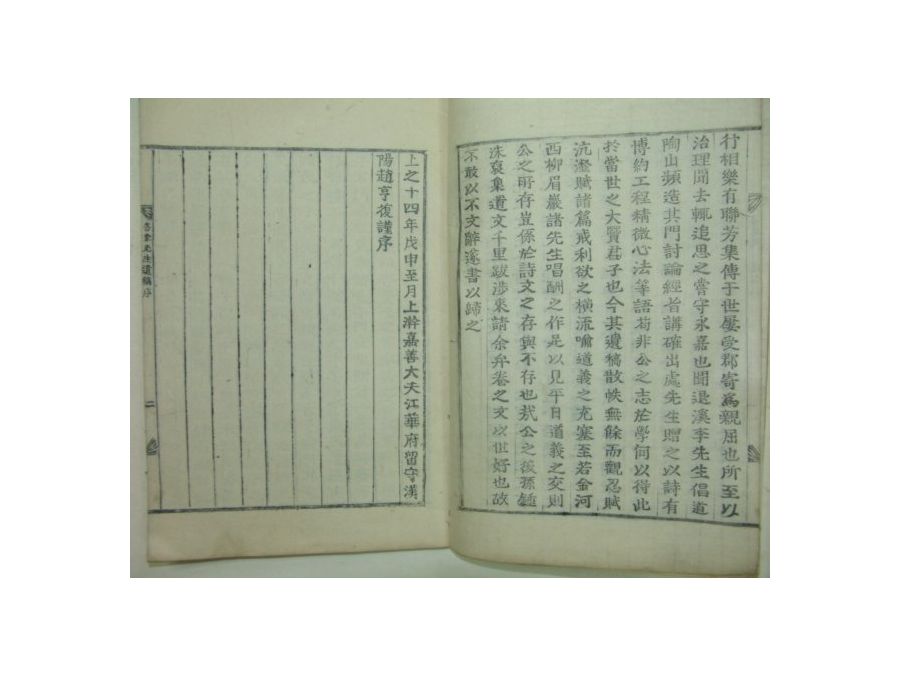 行相樂有聯芳集傳于世屢受郡寄爲親屈也所至以
治理聞去輒追思之嘗守永嘉也聞退溪李先生倡道
陶山頻造其門討論經旨講確出處先生贈之以詩有
博約工程精微心法等語苟非公之志於學何以得此
於當世之大賢君子也今其遺稿散帙無餘而觀忍賦
沆瀣賦諸篇戒利欲之橫流喻道義之充塞至若金河
西柳眉巖諸先生唱酬之作足以見平日道義之交則
公之所存豈係於詩文之存與不存也哉公之後孫鍾
洙裒集遺文千里跋涉來請余弁卷之文以世好也故
不敢以不文辭遂書以歸之
上之十四年戊申至月上澣嘉善大夫江華府留守漢
陽趙亨復謹序
先生遺稿序
二